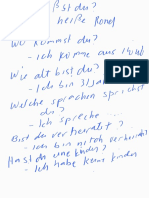 Bist du?
heiße Rond
Wo kommst du?
- Ich komme aus
Wie alt bist du?
- Ich bin 31 Jahre
Welche sprachen sprichst
du?
- Ich spreche
Bist du verheiratet?
- ich bin nicht verheiratet
Hast du eine kinder?
- Ich habe keine kinder